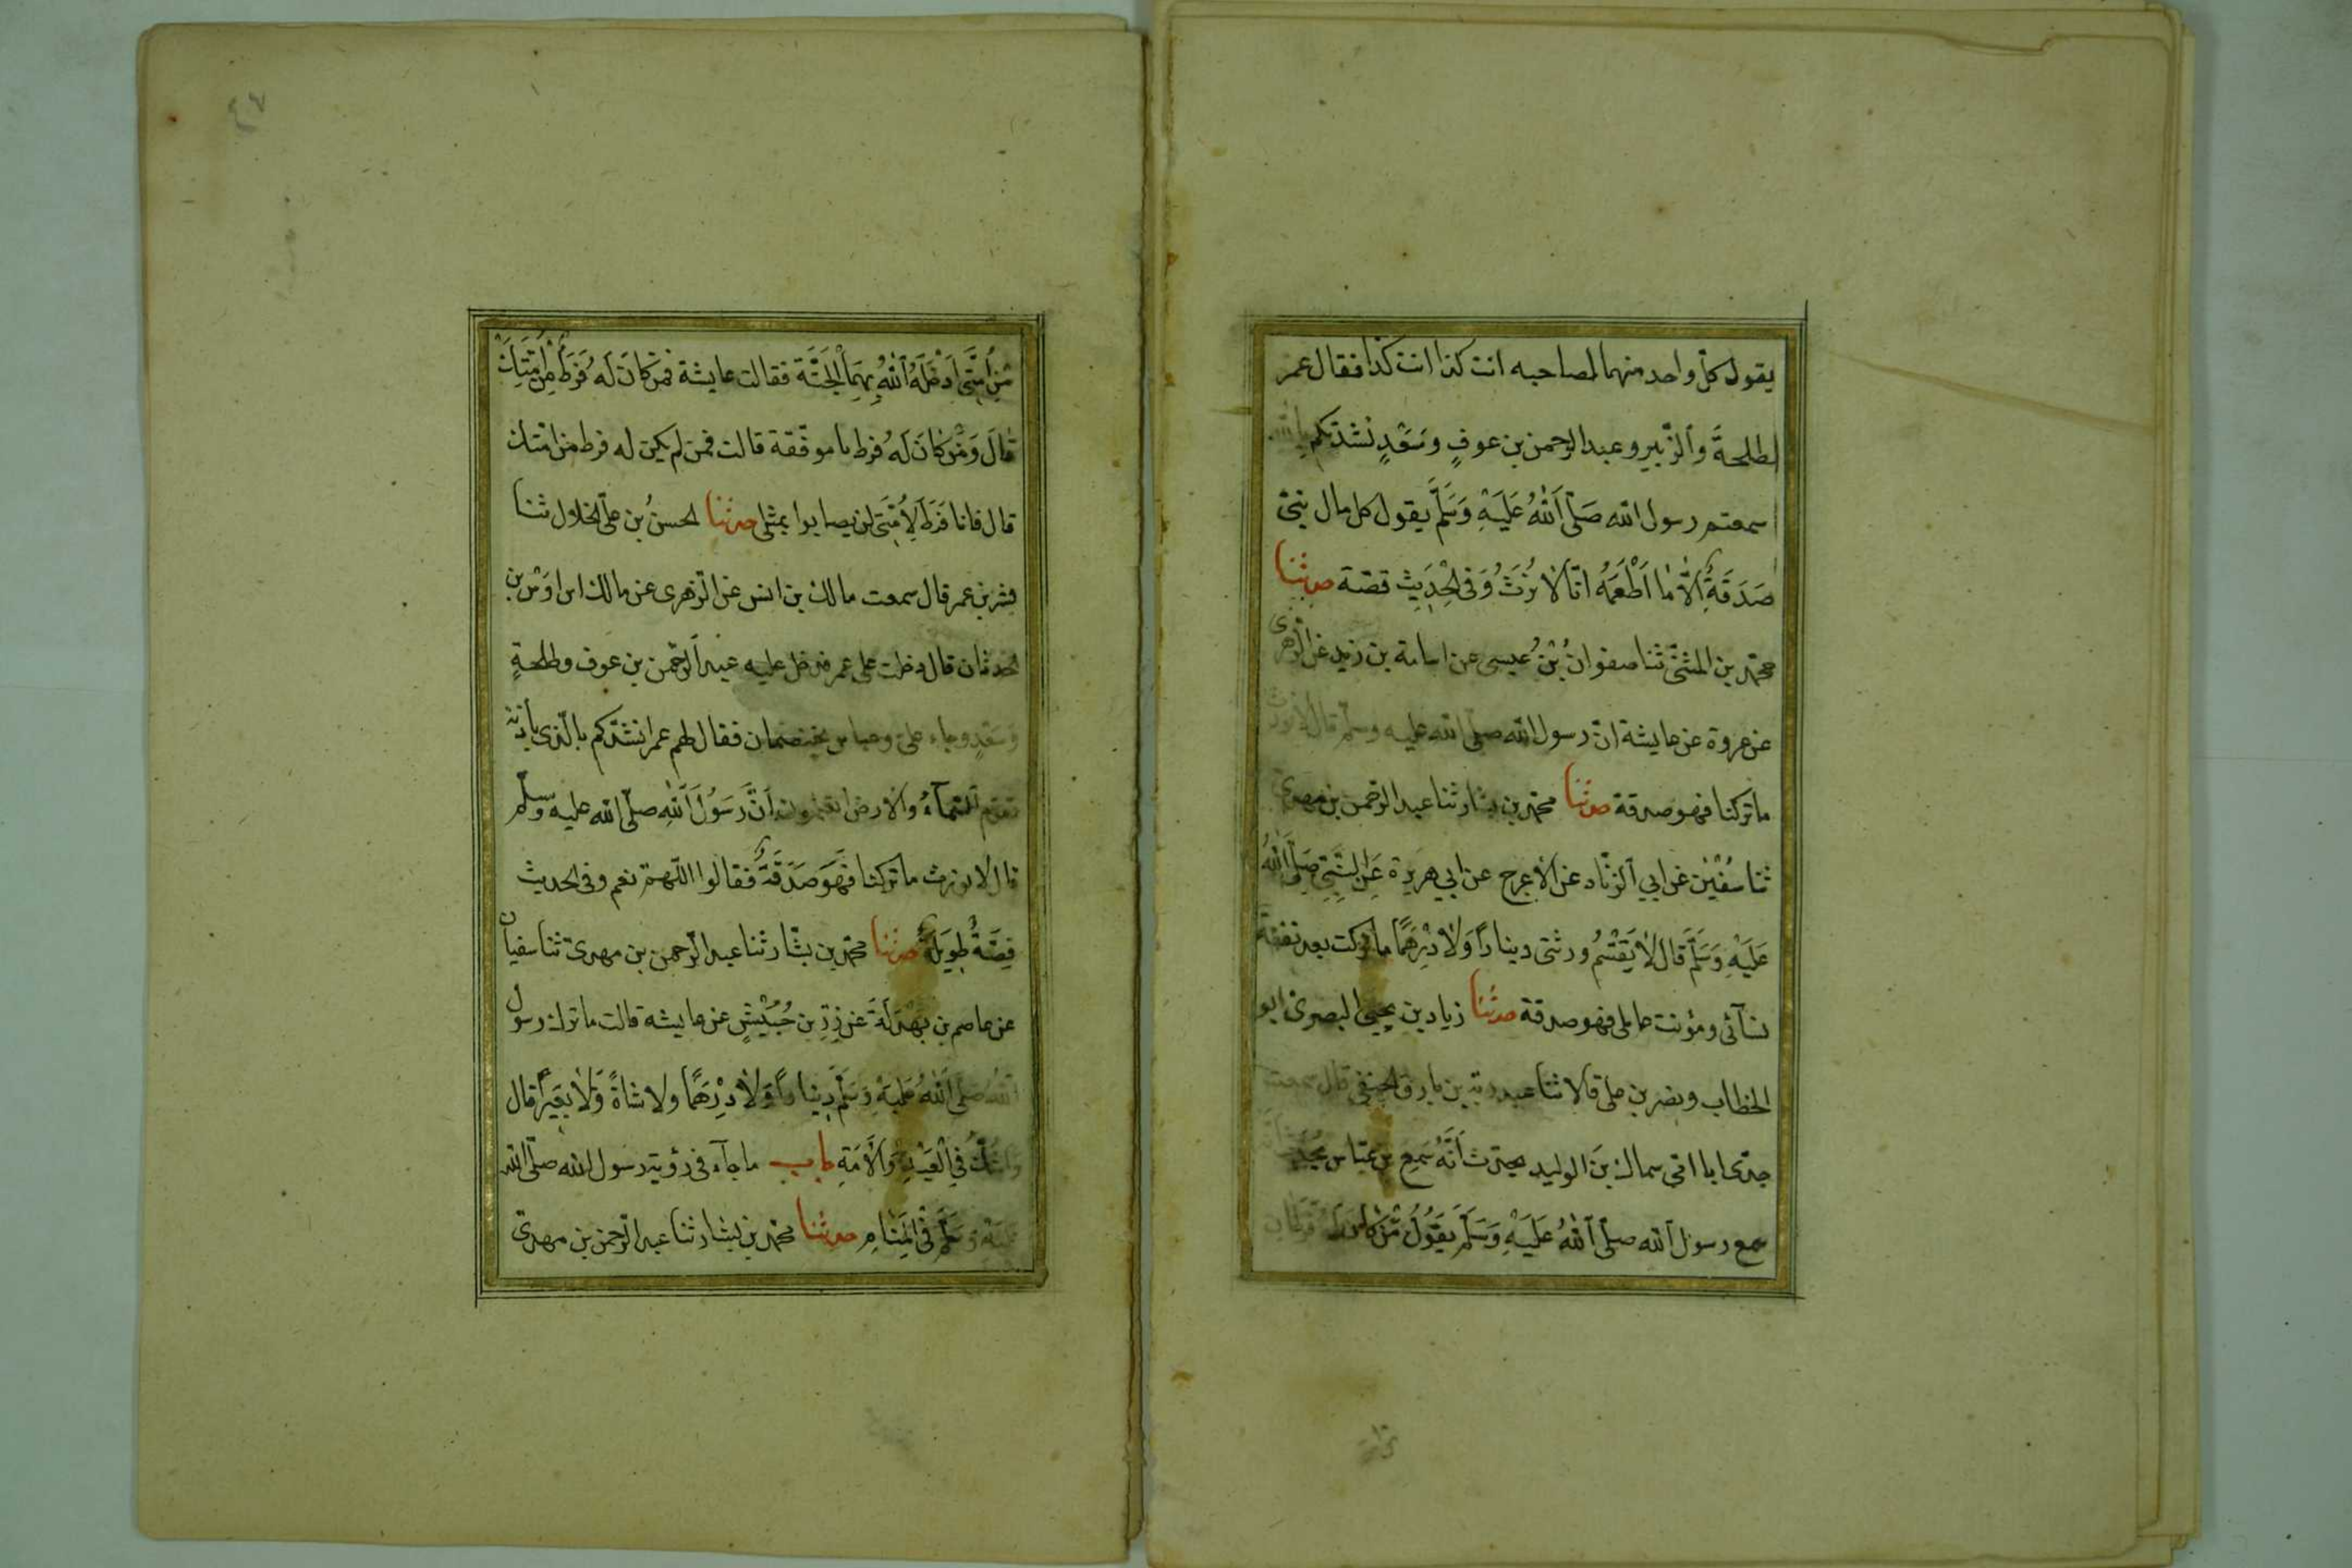 يقول كلّ واحد منهما لصاحبه انت كذا انت كذا فقال عمر
لطلحةَ وَالزّبير وعبد الرحمن بن عوفٍ وسَعْدٍ نشدتكم بالله
سمعتم رسول الله صَلّى اَللهُ عَلَيْهِ وَسَلَّمَ يقول كل مال نبىّ
صَدَقَةٌ اِلّا مَا اَطْعَمَهُ انّا لَا نُورَثُ وَفى الْحَدِيثِ قصّة حدثنا
محمّد بن المثنّى ثنا صفوانُ بْنُ عيسى عن اسامة بن زيد عن الزّهرى
عن عروة عن عايشة انّ رسول الله صلّى الله عليه وسلّم قال لا نورث
ما تركنا فهو صدقة حدثنا محمّد بن بشار ثنا عبد الرّحمن بن مهدىّ
ثنا سُفْيٰن عَن اَبي اَلزّناد عن الْاَعرج عن ابي هريرة عَنِ النَّبِيِّ صَلَّى اللهُ
عَلَيْهِ وَسَلَّمَ قَال لَا يَقْسِمُ ورثتى ديناراً وَلَا دِرْهَمًا ما تركت بعد نفقة
نسآئى ومؤنت عاملى فهو صدقة حدثنا زياد بن يحيى البصرىّ ابو
الخطاب ونصر بن علىّ قالا ثنا عبد ربّه بن بارق الحنفى قال سمعت
جدّى ابا امّى سماك بن الوليد يحدّث اَنَّهُ سَمِعَ بن عبّاس يُحَدِّثُ اَنّه
سمع رسول اَلله صلّى اَللهُ عَلَيْهِ وَسَلَّمَ يَقُولُ مَنْ كَانَ لَهُ فَرَطَانِ
مِنْ اُمَّتِى اَدْخَلَهُ اَللهُ بِهِمَا الْجَنَّةَ فقالت عايشة فَمَنْ كَانَ لَهُ فَرَطٌ مِنْ اُمَّتِكَ
قَالَ وَمَنْ كَانَ لَهُ فرط يا موفّقة قالت فمن لم يكن له فرط من امّتك
قال فانا فَرَط لِاُمَّتِى لن يصابوا بمثلى حدثنا الحسنُ بن علىّ الخلال ثنا
بشر بن عمر قال سمعت مالك بن انس عن الزّهرى عن مالك ابن اَوْس بن
الحدثان قال دخلت على عمر فدخل عليه عبد اَلرّحْمن بن عوف وطلحةٍ
وَسَعْدٍ وجاء علىّ وعباس يختصمان فقال لهم عمر انشدكم بالّذى بأذنه
تقوم السّمآءُ والارض اتعلمون اَنَّ رَسُولَ اَللهِ صلّى الله عليه وسلّم
قال لا نورث ما تركنا فَهَوَ صَدَقَةٌ فقالوا اللّهمّ نعم وفى الحديث
قِصَّةٌ طَوِيلَةٌ حدثنا محمّد بن بشّار ثنا عبد الرّحمن بن مهدىّ ثنا سفيان
عن عاصم بن بَهْدَلَةَ عن زِرِّ بن حُبَيْشٍ عن عايشه قالت ما ترك رسول
الله صَلّى اَللهُ عَلَيْهِ وَسَلَّمَ دِيناراً وَلَا دِرْهَمًا ولا شاةً وَلَا بَعِيرًا قال
وَاشُكُّ فِي الْعَبْدِ وَالْاَمَةِ باب ما جآء فى رؤية رسول الله صلّى الله
عَلَيْهِ وَسَلَّمَ فى الْمَنَامِ حدثنا محمّد بن بشار ثنا عبد الرّحمن بن مهدىّ